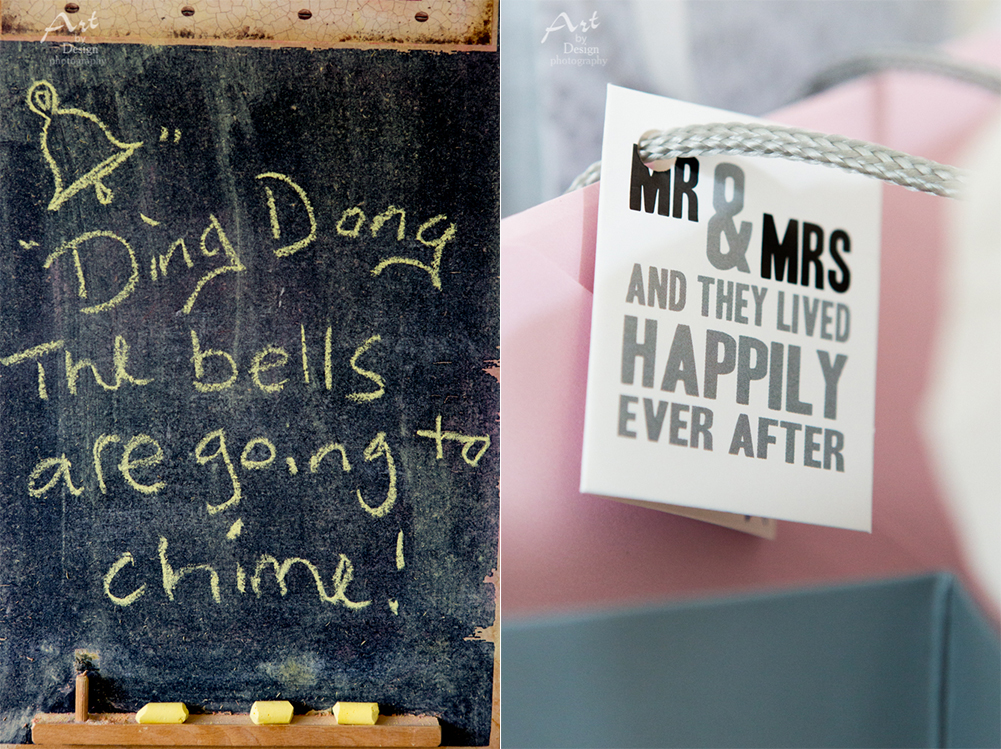 Art
by
Design
photography
"Ding Dong"
The bells
are going to
chime!
Art
by
Design
photography
MR & MRS
AND THEY LIVED
HAPPILY
EVER AFTER